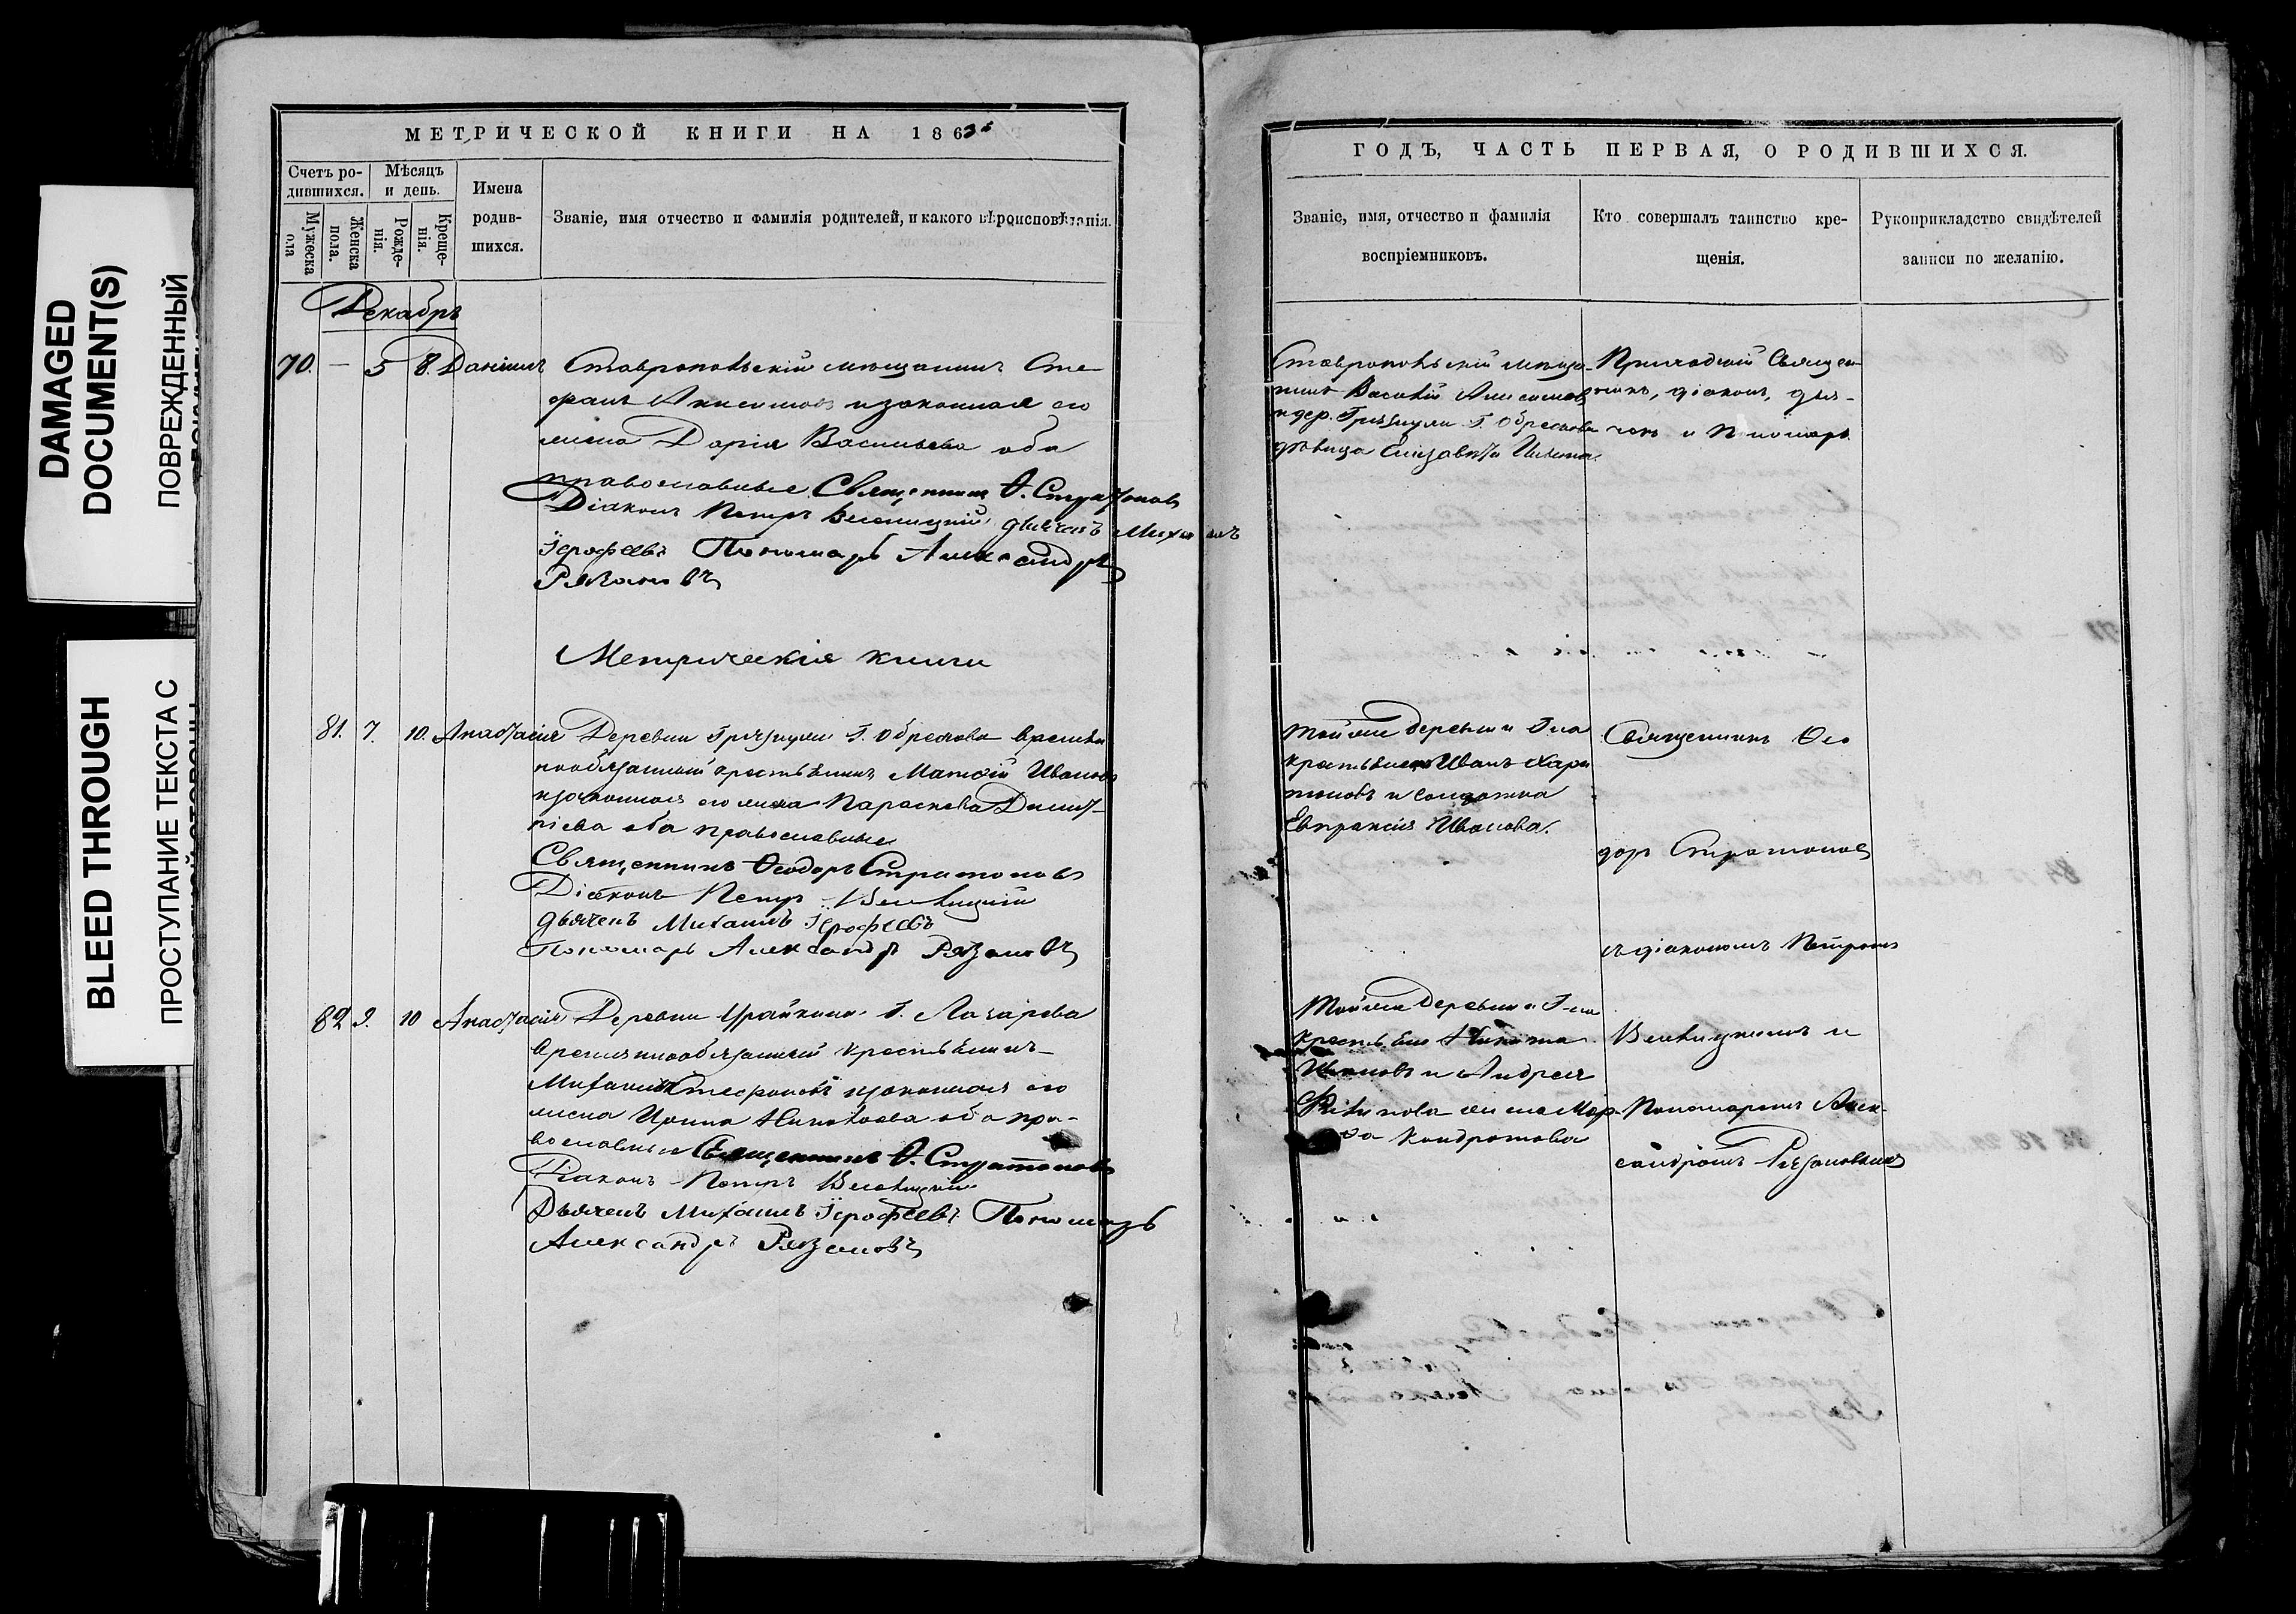 DAMAGED
DOCUMENT(S)
ПОВРЕЖДЕННЫЙ
BLEED THROUGH
ПРОСТУПАНИЕ ТЕКСТА С
МЕТРИЧЕСКОЙ КНИГИ НА 1863й
Счетъ ро-
дившихся.
Мѣсяцъ
и день.
Мужеска
ола
Женска
пола.
Рожде-
нія.
Креще-
нія.
Имена
родив-
шихся.
Званіе, имя отчество и фамилія родителей, и какого вѣроисповѣданія.
Декабрь
70. — 5 8. Даніилъ Ставропольскій мѣщанинъ Сте-
фанъ Анисимовъ и законная его
жена Дарія Васильева оба
православные Священникъ Ѳ. Стратоновъ
Діаконъ Петръ дьячекъ Михаилъ
Іерофеевъ Пономарь Александръ
Рязановъ
Метрическія книги
81. 7. 10. Анастасія Деревни Грязнухи Г. Обрезкова временно
ппообязанный крестьянинъ Матѳій Ивановъ
и законная его жена Параскева Димит-
ріева оба православные
Священникъ Ѳеодоръ Стратоновъ
Діаконъ Петръ
дьячекъ Михаилъ Іерофеевъ
Пономарь Александръ Рязановъ
82 9. 10 Анастасія Деревни Г. Лазарева
временнообязанный крестьянинъ
Михаилъ Стефановъ и законная его
жена Ирина оба пра-
вославные Священникъ Ѳ. Стратоновъ
Діаконъ Петръ
Дьячекъ Михаилъ Іерофеевъ Пономарь
Александръ Рязановъ
ГОДЪ, ЧАСТЬ ПЕРВАЯ, О РОДИВШИХСЯ.
Званіе, имя, отчество и фамилія
воспріемниковъ.
Кто совершалъ таинство кре-
щенія.
Рукоприкладство свидѣтелей
записи по желанію.
Ставропольскій мѣща-
нинъ Василій Анисимовъ
и дер. Грязнухи Г. Обрезкова
дѣвица Елизавета
Приходскій Священ-
никъ, діаконъ, дья-
чекъ и Пономарь.
Той же деревни и Г-на
крестьянинъ Иванъ Хари
тоновъ и солдатка
Евпраксія Иванова.
Священникъ Ѳео
доръ Стратоновъ
съ діакономъ Петромъ
Той же деревни и Г-на
Никита
Ивановъ и Андрея
жена Мар-
Кондратова
и
Пономаремъ Алек-
сандромъ Рязановымъ